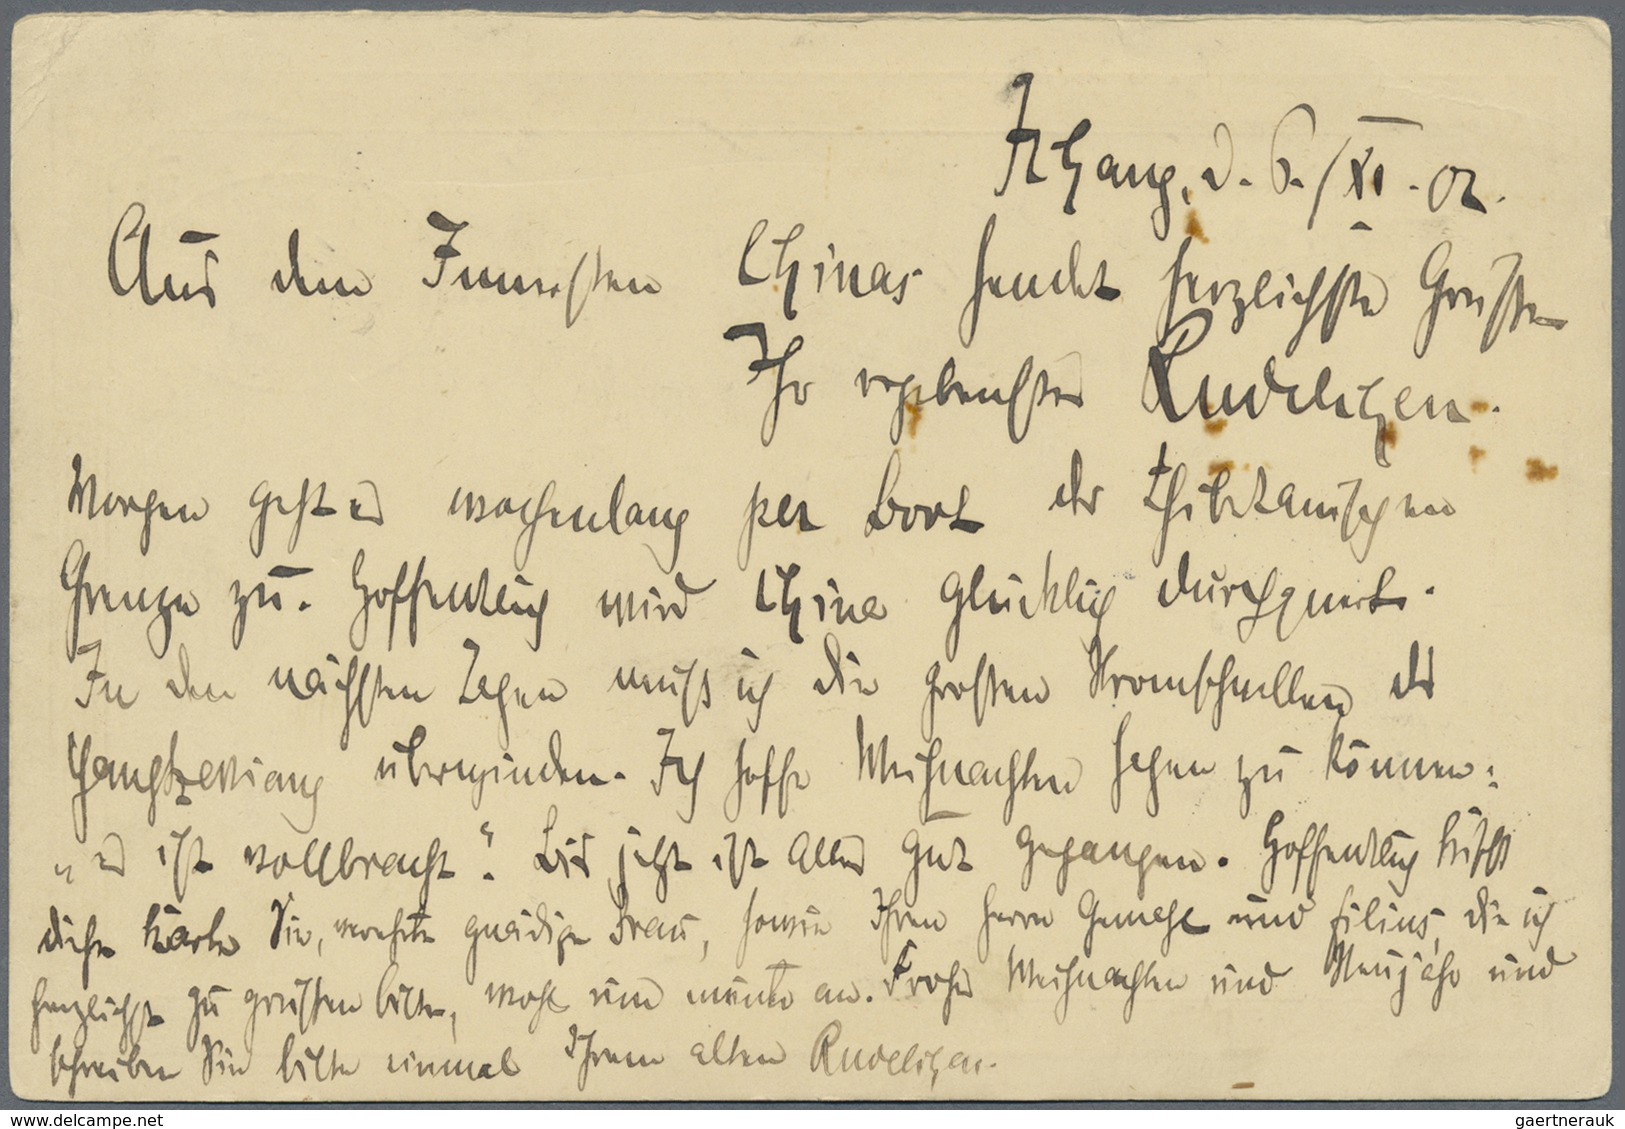 Ichang, d. 6./XI. 02.
Aus dem Innersten Chinas sendet herzlichste Grüße
Ihr ergebenster Rudelitzen.
Morgen geht es wochenlang per Boot der Thibetanischen
Grenze zu. Hoffentlich wird China glücklich durchquert.
In den nächsten Tagen muß ich die großen Stromschnellen des
Yangtzekiang überwinden. Ich hoffe Weihnachten sagen zu können:
„es ist vollbracht". Bis jetzt ist Alles gut gegangen. Hoffentlich trifft
diese Karte Sie, verehrte gnädige Frau, sowie Ihren Herrn Gemahl und filius, die ich
herzlichst zu grüßen bitte, wohl und munter an. Frohe Weihnachten und Neujahr und
schreiben Sie bitte einmal Ihrem alten Rudelitzen.
www.delcampe.net
gaertnerauk